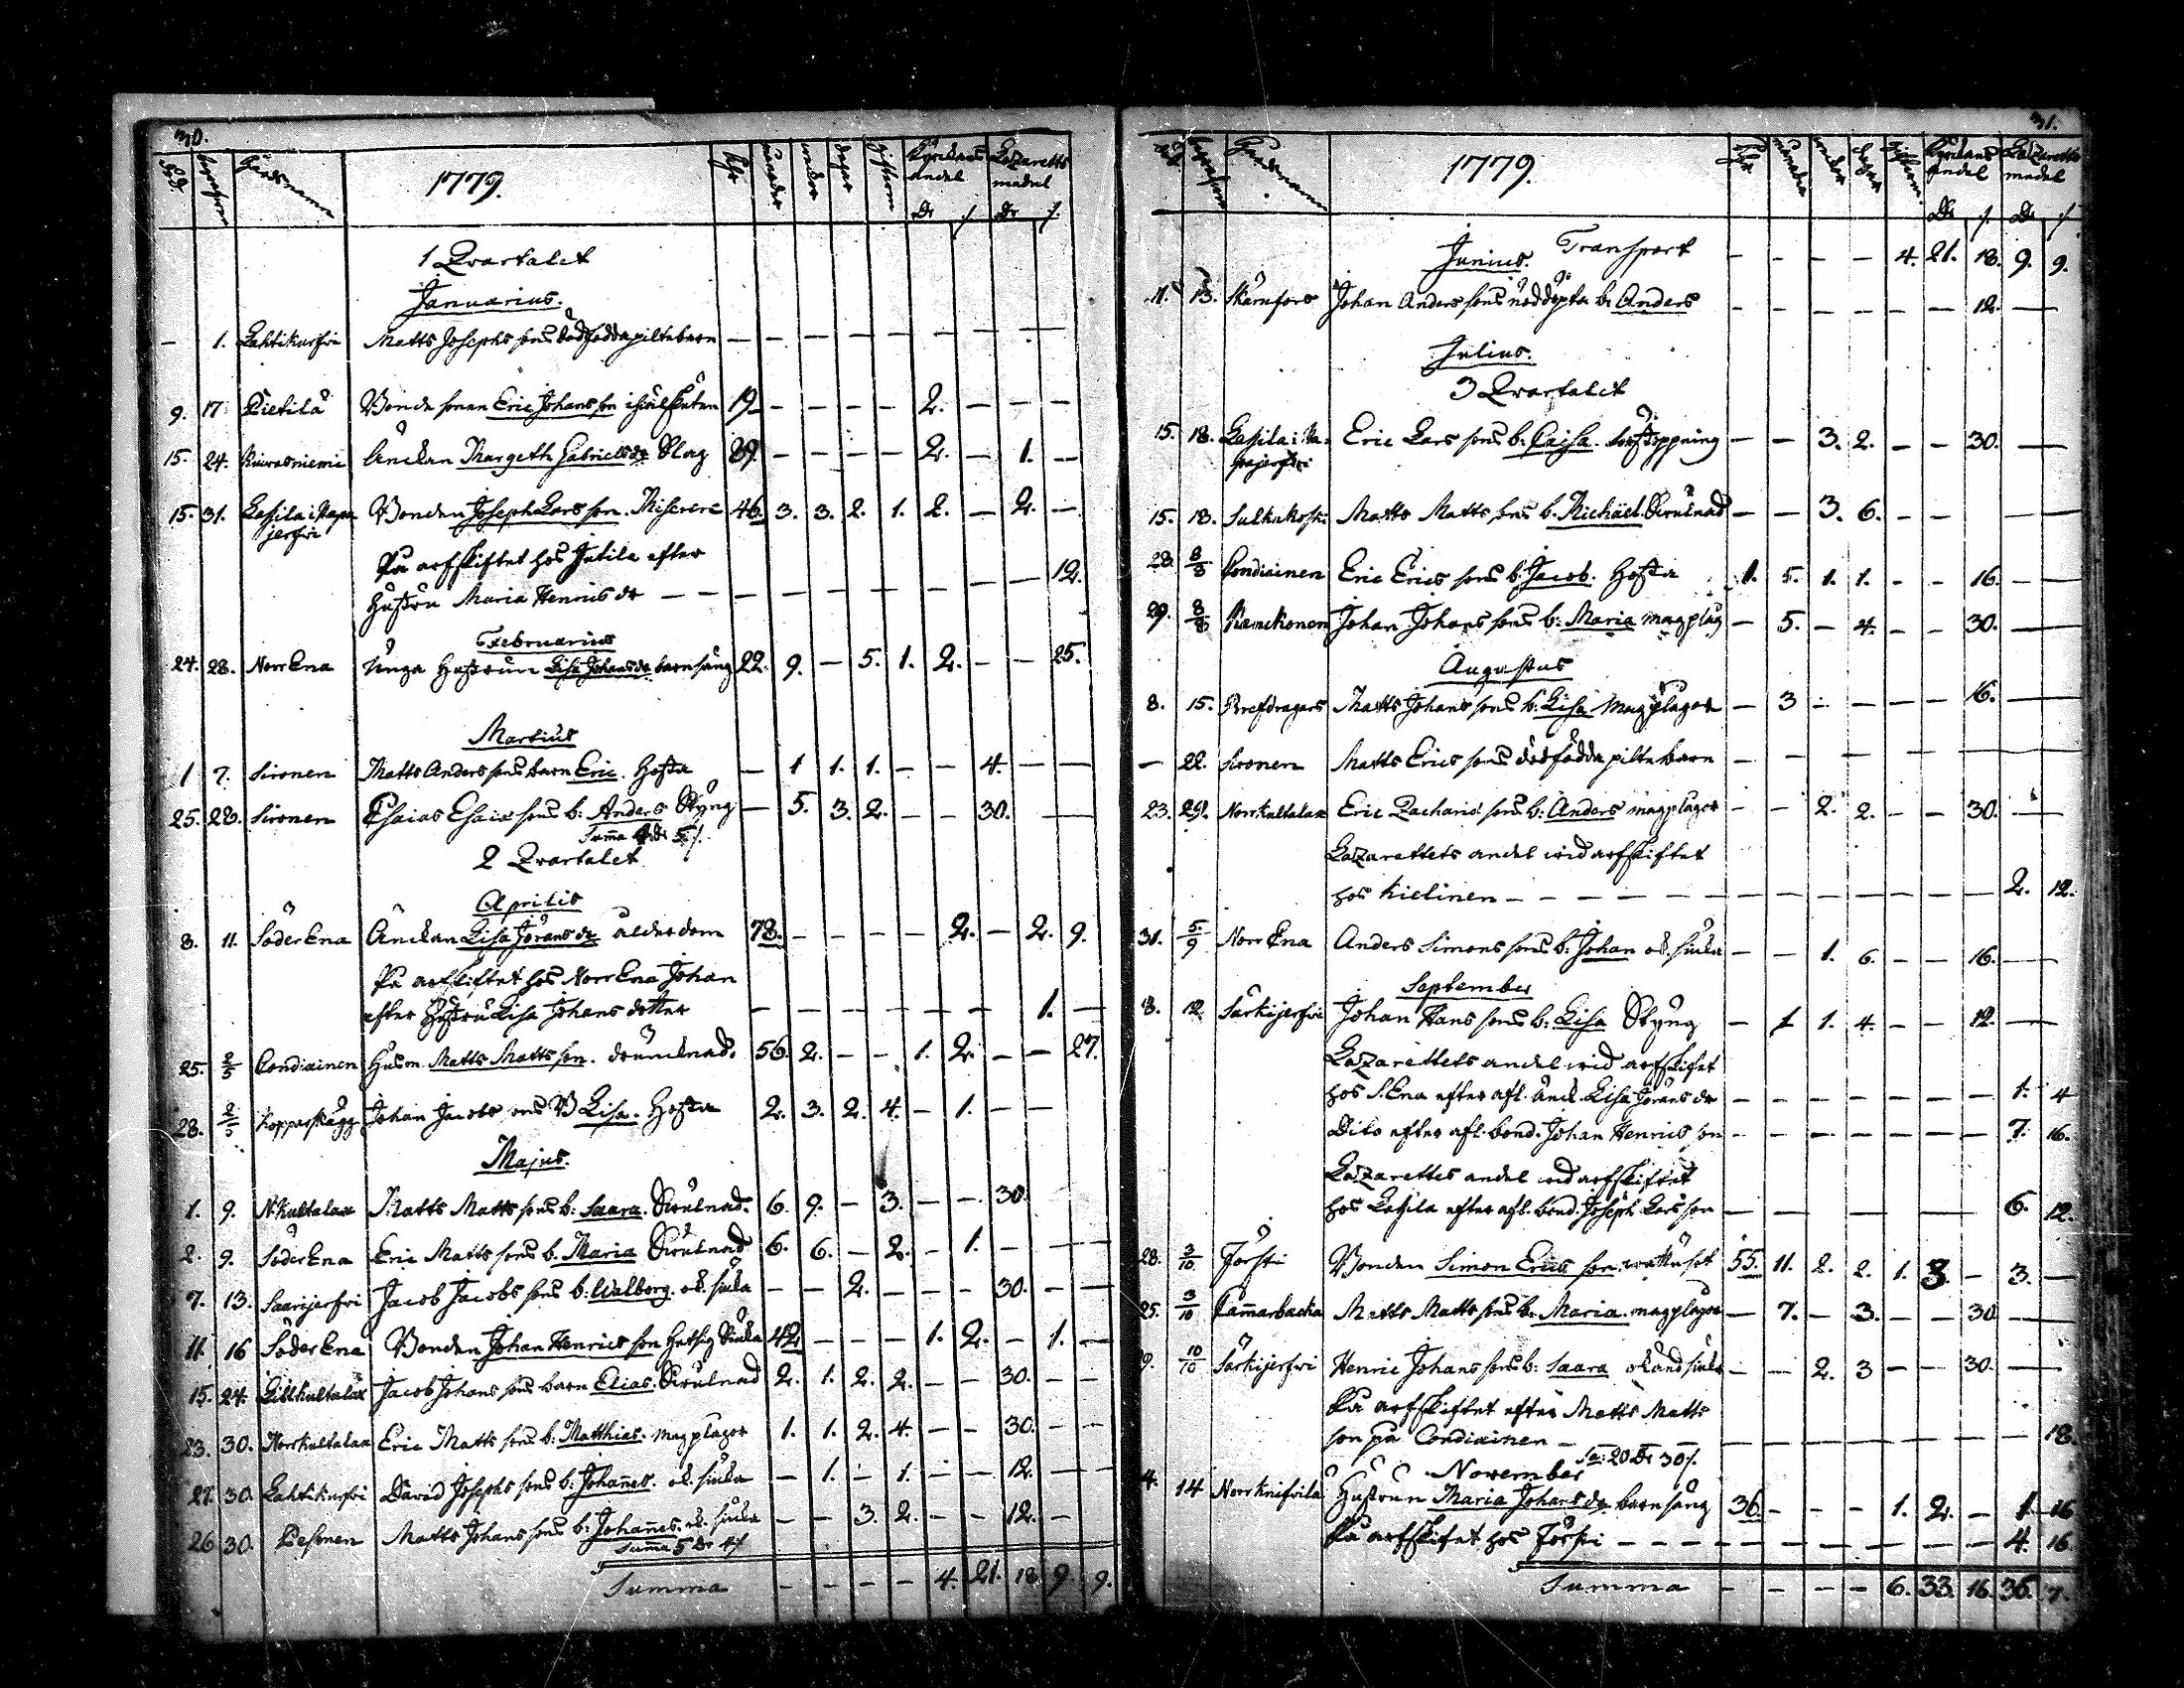 30.
död. begrafne Hemman 1779. åhr månader veckor dagar gifttom Kyrckans andel Lazaretts medel
Dr /. Dr /.
1 Qvartalet
Januarius.
— 1. Lahtikurfvi Matts Josephs sons dödfödda piltebarn — — — — — — — — —
9. 17 Pietilä Bonde sonen Eric Johans son 19 — — — — 2. — — —
15. 24. Kuivasniemi Änckan Margeth Gabriels dr Slag 89. — — — — 2. — 1. —
15. 31. Lassila i Napa Bonden Joseph Lars son. Miserere 46. 3. 3. 2. 1. 2. — 2. —
jerfvi
På arfskiftet hos Jutila efter
Hustru Maria Henrics dr — — — — — — — — 12.
Februarius
24. 28. Norr Ena Unga Hustrun Lisa Johans dr barnsäng 22. 9. — 5. 1. 2. — — 25.
Martius
1 7. Sironen Matts Anders sons barn Eric. Hosta — 1 1. 1. — — 4. — —
25. 28. Sironen Esaias Esaiæ sons b: Anders Styng — 5. 3. 2. — — 30. —
Summa
2 Qvartalet
Aprilis
8. 11. Söder Ena Änckan Lisa Jörans dr ålderdom 78. — — — — 2. — 2. 9.
På arfskiftet hos Norr Ena Johan
efter Hustru Lisa Johans dotter — — — — — — — 1. —
25. 2/5 Condiainen Husm. Matts Matts son. drunknad. 56. 2. — — 1. 2. — — 27.
28. 2/5 Kopparskägg Johan Jacobs sons B Lisa. Hosta 2. 3. 2. 4. — 1. — —
Majus.
1. 9. N. Kultalax Matts Matts sons b: Saara. Svulnad. 6. 9. — 3. — — 30
2. 9. Söder Ena Eric Matts sons b. Maria Svulnad 6. 6. — 2. — 1. — —
7. 13. Saarijerfvi Jacob Jacobs sons b: Walborg. ok. siuka — — 2. — — — 30. — —
11. 16 Söder Ena Bonden Johan Henrics son hetsig siuka 42 — — — 1. 2. — 1. —
15. 24. Lillkultalax Jacob Johans sons barn Elias. Svulnad 2. 1. 2. 2. — — 30. — —
23. 30. Norrkultalax Eric Matts sons b: Matthias. magplågor 1. 1. 2. 4. — — 30. — —
27. 30. Lahtikurfvi David Josephs sons b: Johannes. ok. siuka — 1. — 1. — — 12. — —
26 30. Pesonen Matts Johans sons b: Johannes. ok. siuka — — 3. 2. — — 12. —
Summa 5 Dr 4/.
Summa — — — — 4. 21. 18 9. 9.
31.
begrafne Hemman 1779. åhr månader veckor dagar gifttom Kyrckans andel Lazaretts medel
Dr /. Dr /.
Junius. Transport — — — — 4. 21. 18. 9. 9.
11. 13. Skarnfors Johan Anders sons nöddöpta b: Anders — — — — — — 12. —
Julius.
3 Qvartalet
15. 18. Lassila i Na- Eric Lars sons b: Caisa. förstoppning — — 3. 2. — — 30. —
papajerfvi
15. 18. Sulkukoski Matts Matts sons b. Michäel. Svulnad — — 3. 6. — — —
28. 8/8 Condiainen Eric Erics sons b: Jacob. Hosta 1. 5. 1. 1. — — 16. — —
29. 8/8 Ramckonen Johan Johans sons b: Maria magplåg — 5. — 4. — — 30. —
Augustus
8. 15. Brefdragars Matts Johans sons b: Lisa Magplågor — 3 — — — — 16. —
— 22. Sironen Matts Erics sons dödfödda piltebarn — — — — — — — —
23. 29. Norrkultalax Eric Zachariæ sons b: Anders magplågor — — 2. 2. — — 30. —
Lazarettets andel vid arfskiftet
hos Kielinen — — — — — — — — 2. 12.
31. 5/9 Norr Ena Anders Simons sons b: Johan ok. siuka — — 1. 6. — — 16. —
September
8. 12. Särkijerfvi Johan Hans sons b: Lisa Styng — 1 1. 4. — — 12. —
Lazarettets andel vid arfskiftet
hos S. Ena efter afl. änck. Lisa Jörans dr — — — — — — — 1. 4
Dito efter afl. bond. Johan Henrics son — — — — — — — 7. 16.
Lazarettes andel vid arfskiftet
hos Lassila efter afl. bond. Joseph Lars son — — — — — 6. 12.
28. 3/10 Förfti Bonden Simon Erics son. wattusot 55. 11. 2. 2. 1. 3. — 3. —
25. 3/10 Tammarbacka Matts Matts sons b: Maria. magplågor — 7. — 3. — — 30 —
29. 10/10 Särkijerfvi Henric Johans sons b: Saara okänd siuka — — 2. 3 — — 30. —
På arfskiftet efter Matts Matts
son på Condiainen — — — — — — — — 18.
Sa: 20 Dr 30/.
November
4. 14 Norrknifvila Hustrun Maria Johans dr barnsäng 36. — — — 1. 2. — 1 16
På arfskiftet hos Förfti — — — — — — — — 4. 16.
Summa — — — — 6. 33. 16. 36. 7.